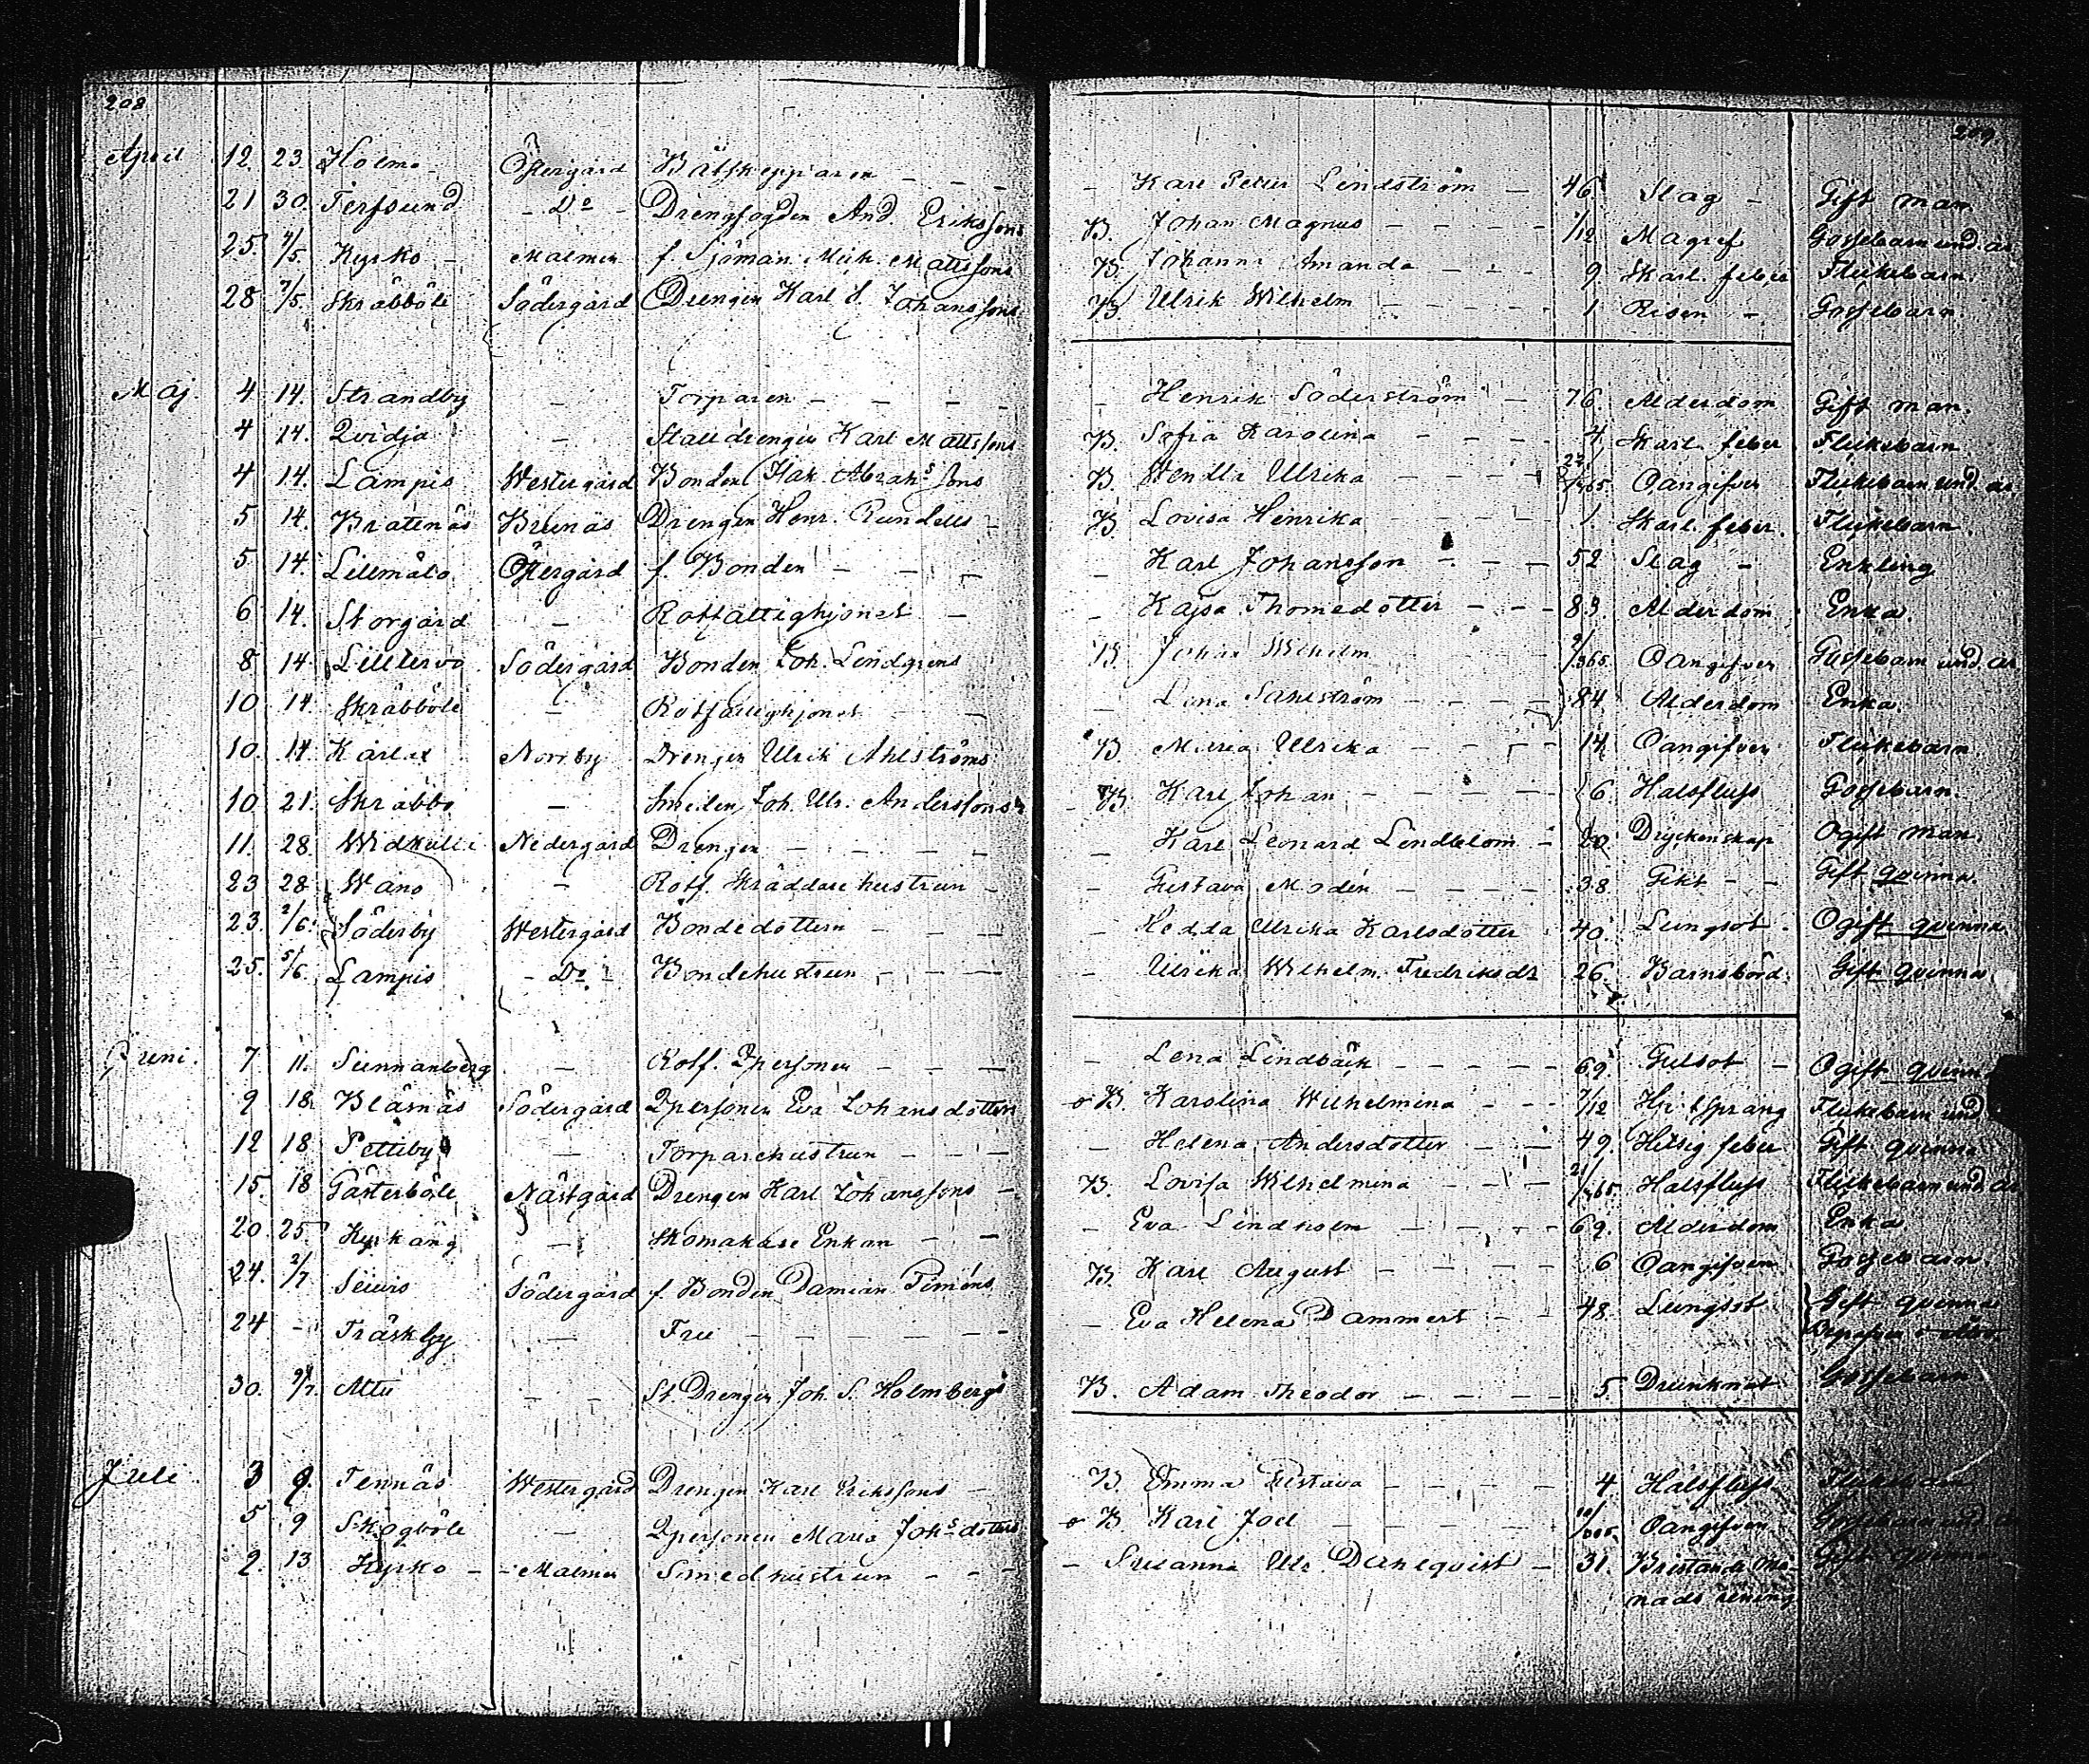 208
209
April 12. 23. Holmo Östergård Båtskepparen — — — — Karl Peter Lindström — 46 Slag — Gift man
21 30. Terfsund — Do — Drengfogden And. Erikssons B. Johan Magnus — — — 1/12 Magref Gossebarn und. år
25. 4/5. Kyrko — Malmen f. Sjöman Mich. Mattssons B. Johanna Amanda — — — 9 Skarl. feber Flickebarn.
28 7/5. Skräbböle Södergård Drengen Karl S. Johanssons B. Ulrik Wilhelm — — — 1. Risen — Gossebarn.
Maj. 4 14. Strandby — Torparen — — — — — Henrik Söderström — 76. Alderdom Gift man.
4 14. Qvidja — Stalldrengen Karl Mattssons B. Sofia Karolina — — — 4 Skarl. feber Flickebarn
4 14. Lampis Westergård Bonden Isak Abrahs sons B. Wendla Ulrika — — — /365. Oangifven Flickebarn und. år
5 14. Brattnäs Brunäs Drengen Henr. Rundells — B. Lovisa Henrika — — — 1. Skarl. feber. Flickebarn.
5 14. Lillmälo Östergård f. Bonden — — — — Karl Johansson — — — 52 Slag — Enkling
6 14. Storgård — Rotfattighjonet — — Kajsa Thomedotter — — 83. Alderdom Enka.
8 14. Lilltervo Södergård Bonden Joh. Lindgrens B. Johan Wilhelm 9/365. Oangifven Gossebarn und. år
10 14. Skräbböle — Rotfattighjonet — — — Lena Sahlström — — — 84 Alderdom Enka.
10. 14 Karlax Norrby Drengen Ulrik Ahlströms B. Maria Ulrika — — — 14. Oangifven Flickebarn
10 21. Skräbbö — Smeden Joh. Ulr. Anderssons B. Karl Johan — — — 6. Halsfluss Gossebarn.
11. 28. Widkulla Nedergård Drengen — — — — — Karl Leonard Lindblom — 20 Dryckenskap Ogift man.
23 28 Wano — Rotf. Skräddare hustrun — — Gustava Modén — — — 38 Gikt — — Gift qvinna.
23. 2/6. Söderby Westergård Bondedottern — — — — Hedda Ulrika Karlsdotter 40. Lungsot. Ogift qvinna
25. 5/6. Lampis — Do — Bondehustrun — — — — Ulrika Wilhelm. Fredriksdr 26. Barnsbörd. Gift qvinna
Juni. 7 11. Sunnanberg — Rotf. Qpersonen — — — — Lena Lindbäck — — — 69. Gulsot — Ogift qvinna
9 18. Blåsnäs Södergård Qpersonen Eva Johansdotters o B. Karolina Wilhelmina — — 7/12 Flickebarn und
12 18 Pettby — Torparehustrun — — — — Helena Andersdotter — — 49. Hetsig feber Gift qvinna
15. 18 Gästerböle Nästgård Drengen Karl Johanssons — B. Lovisa Wilhelmina — — — 21/365. Halsfluss Flickebarn und. år
20 25. Kyrkäng — Skomakare Enkan — — — Eva Lindholm — — — 69. Alderdom Enka
24. 2/7. Södergård f. Bonden Damian Simons B. Karl August — — — 6 Oangifven Gossebarn.
24 — Träskby — Fru — — — — — — Eva Helena Dammert — — 48. Lungsot Gift qvinna
Begrafven i Åbo
30. 9/7. Attu — — St. Drengen Joh. S. Holmbergs B. Adam Theodor — — — 5 Drunknat Gossebarn
Juli 3 9. Tennäs Westergård Drengen Karl Erikssons — B. Emma Gustava — — — 4 Halsfluss
5 9 Skogböle — Qpersonen Maria Johs dotters o B. Karl Joel — — — 10/365. Oangifven Gossebarn und. år
9. 13 Kyrko — — Malmen Smedhustrun — — — — Susanna Ulr. Dahlqvist — 31. Bristande Må- Gift qvinna
nads rening